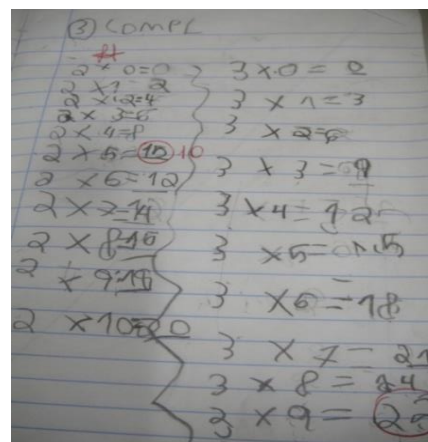 ③ COMPL
2 × 0 = 0
2 × 1 = 2
2 × 2 = 4
2 × 3 = 6
2 × 4 = 8
2 × 5 = 12 10
2 × 6 = 12
2 × 7 = 14
2 × 8 = 16
2 × 9 = 18
2 × 10 = 20
3 × 0 = 0
3 × 1 = 3
3 × 2 = 6
3 × 3 = 9
3 × 4 = 12
3 × 5 = 15
3 × 6 = 18
3 × 7 = 21
3 × 8 = 24
3 × 9 = 22